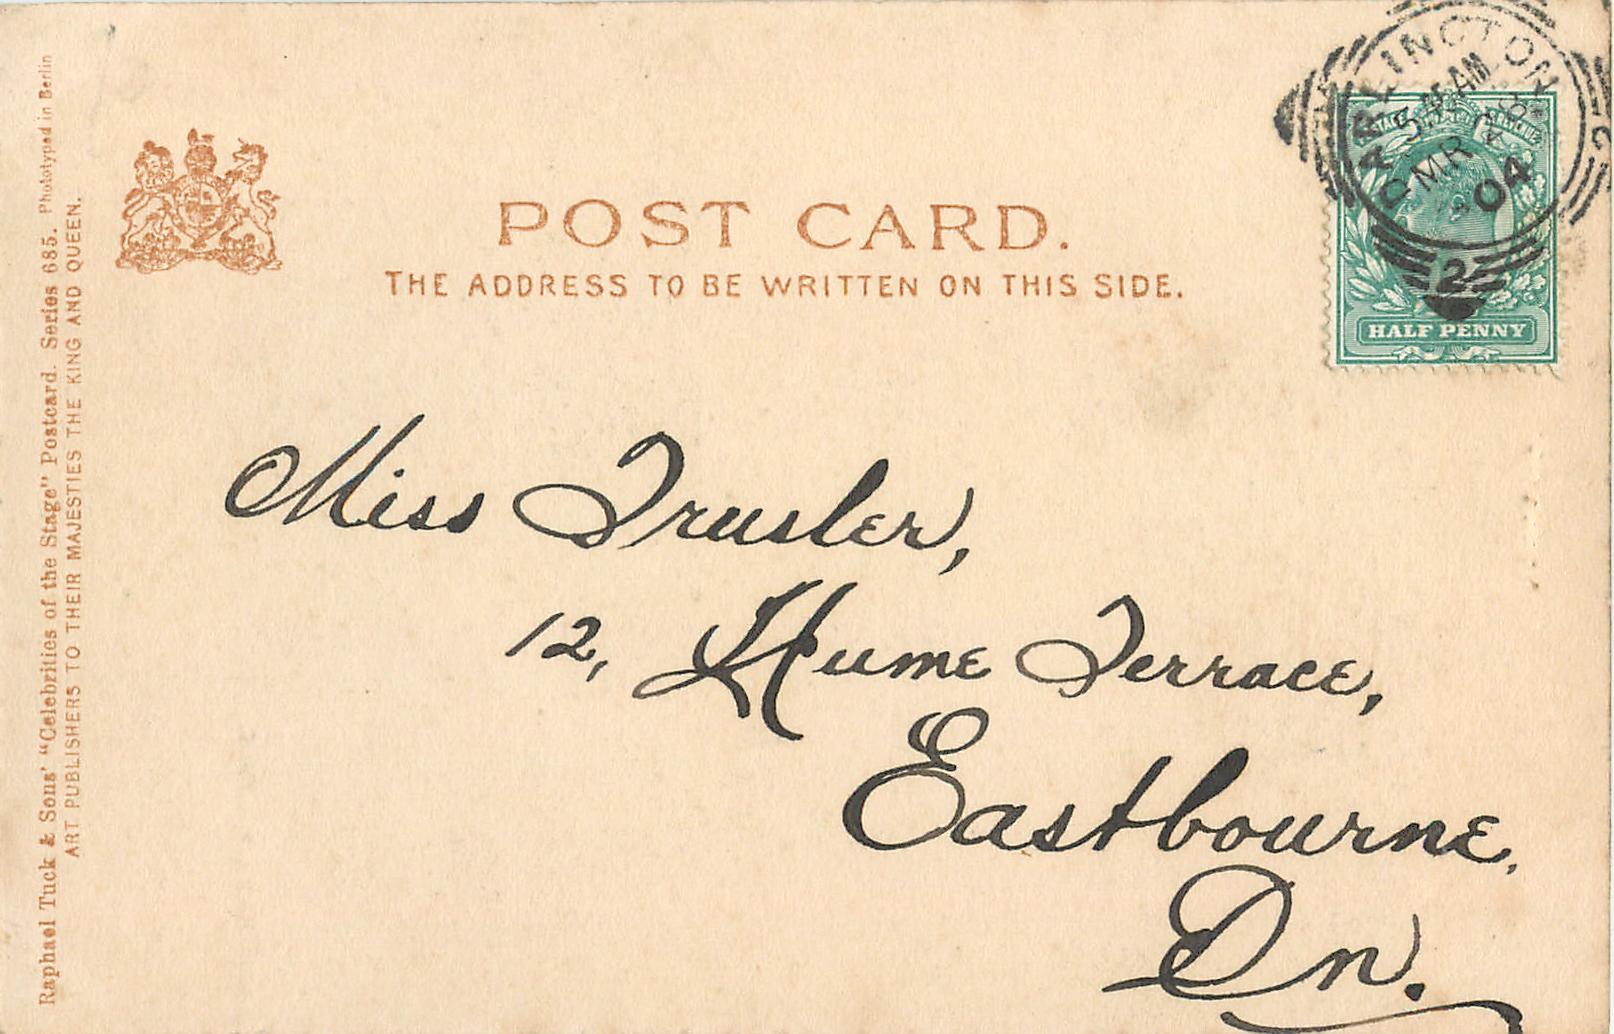 POST CARD.
THE ADDRESS TO BE WRITTEN ON THIS SIDE.
Raphael Tuck & Sons' "Celebrities of the Stage" Postcard. Series 685. Phototyped in Berlin
ART PUBLISHERS TO THEIR MAJESTIES THE KING AND QUEEN.
DARLINGTON
AM
MR
04
2
HALF PENNY
Miss Trusler,
12, Hume Terrace,
Eastbourne,
Dn.